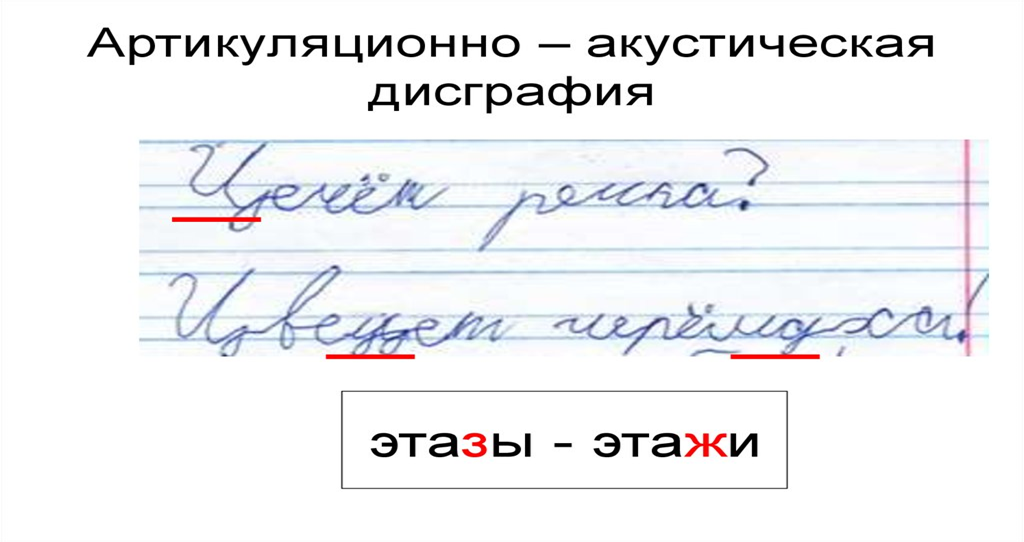 Артикуляционно – акустическая
дисграфия
Цечёт речка?
Цвецет черёмдха!
этазы - этажи